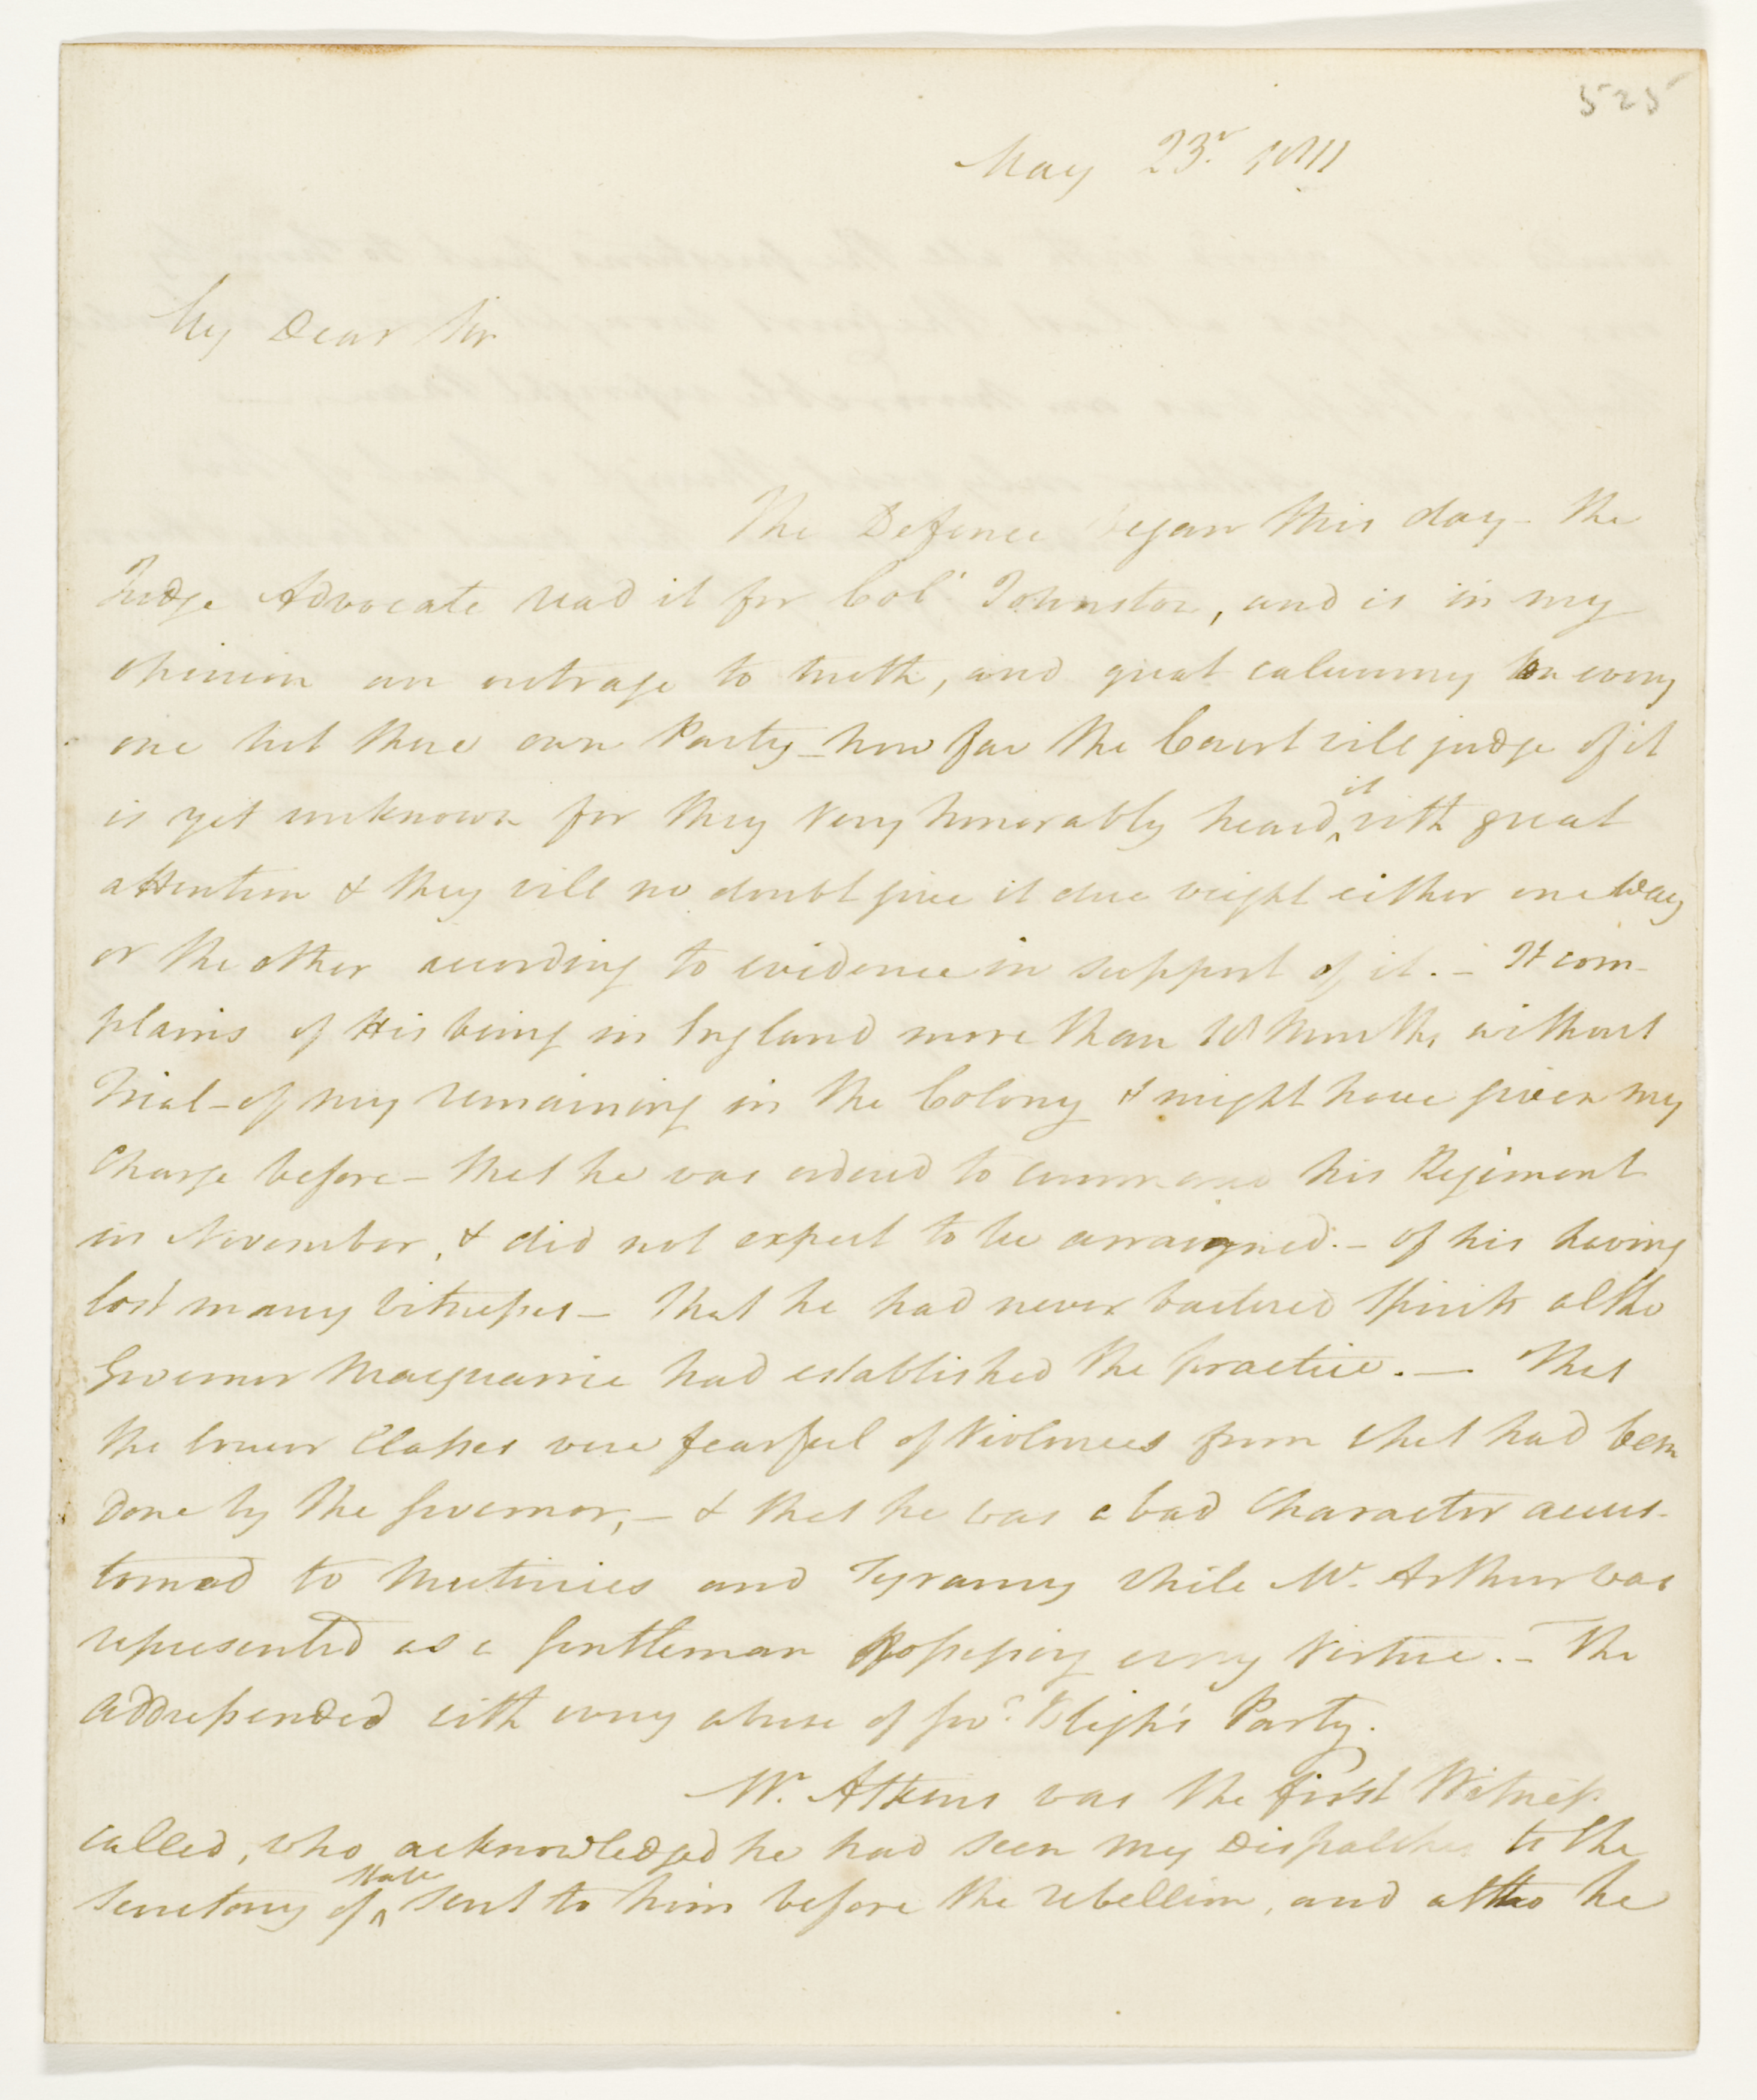 525
May 23.r 1811
My Dear Sir
The Defence began this day – the
Judge Advocate read it for Col.l Johnston, and is in my
opinion an outrage to truth, and great calumny on every
one but there own Party – how far the Court will judge of it
is yet unknown for they very honorably heard ^it with great
attention & they will no doubt give it due weight either one way
or the other according to evidence in support of it. – It com-
plains of His being in England more than 18 Months without
Trial – of my remaining in the Colony & might have given my
Charge before – that he was ordered to command his Regiment
in November, & did not expect to be arraigned. – of his having
lost many Witnesses – that he had never bartered Spirits altho
Governor Macquarrie had established the practice. — That
the lower Classes were fearful of Violences from what had been
done by the Governor, – & that he was a bad Character accus-
tomed to Mutinies and Tyranny while Mr. Arthur was
represented as a Gentleman Possessing every Virtue. – The
address ended with every abuse of Gov.r Bligh's Party.
Mr. Atkins was the first Witness
called, who acknowledged he had seen my Dispatches to the
Secretary of ^State sent to him before the rebellion, and altho he